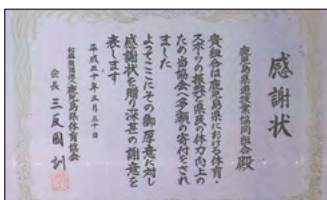 感謝状
鹿児島県遊技業協同組合 殿
貴組合は鹿児島県における体育・
スポーツの振興と県民の体力向上の
ため当協会へ多額の寄付をされ
ました
よってここにその御厚意に対し
感謝状を贈り深甚の謝意を
表します
平成三十年五月三十日
公益財団法人鹿児島県体育協会
会長 三反園 訓